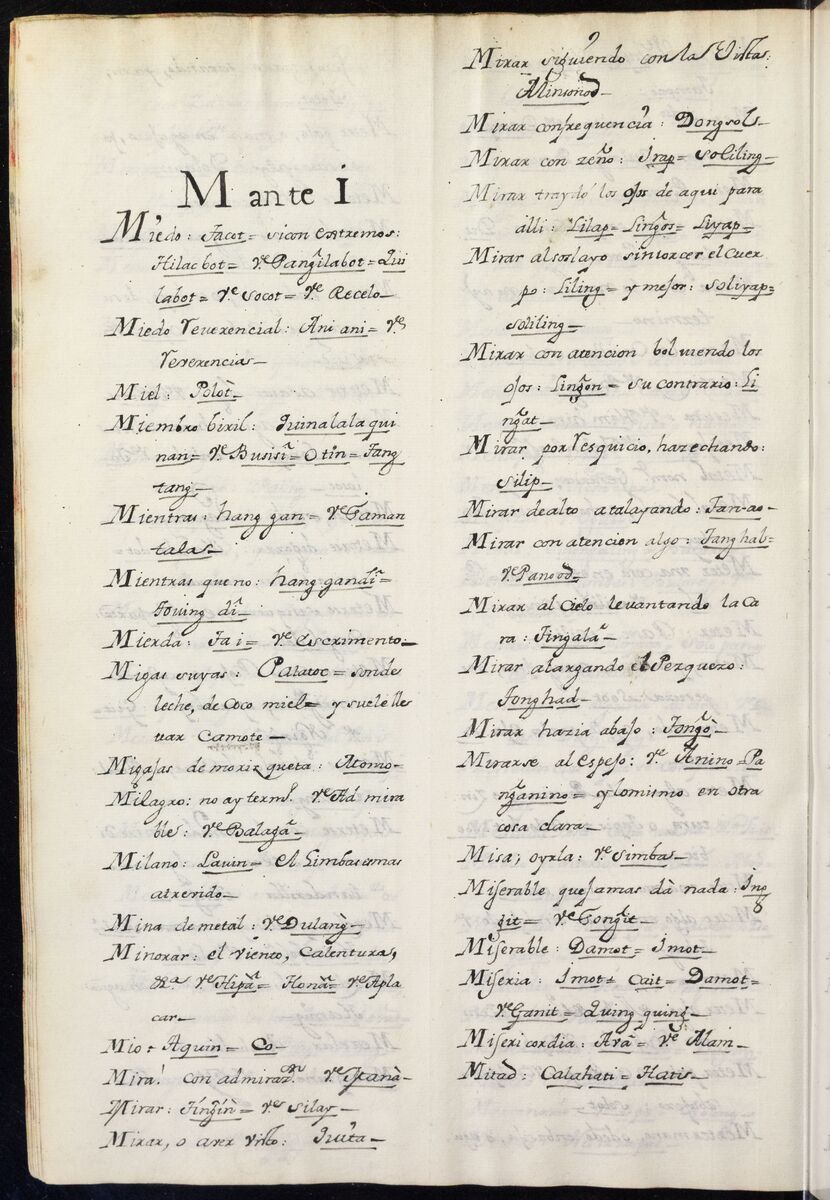 M ante I
Miedo: Tacot= si con extremos:
Hilacbot= Ve Pang̃ilabot= Qui
labot= Ve Socot= Ve Recelo_
Miedo Reverencial: Ani ani= Ve
Reverencias_
Miel: Polòt_
Miembro biril: Quinalalaqui
nan= Ve Busisi= Otin= Tang
tang_
Mientras: hang gan= Ve Taman
talas_
Mientras que no: hang gandi=
di_
Mierda: Tai= Ve Escrimento_
Migas suyas: Palatoc= son de
leche, de Coco miel= y suele lle
var Camote_
Migajas de morizqueta: Atomo_
Milagro: no ay termo. Ve Admira
ble: Ve Balaga_
Milano: Lavin_ el Limbas es mas
atrevido_
Mina de metal: Ve Dulang_
Minorar: el viento, Calentura,
&a. Ve Hipa= Hona= Ve Apla
car_
Mio= Aquin= Co_
Mira! con admiraon Ve Itanà_
Mirar: Ting̃in= Ve Silay_
Mirar, o aver visto: Quita_
Mirar siguiendo con la Vista:
Alinsonod_
Mirar con frequencia: Dongsol_
Mirar con zeño: Irap= Soliling_
Mirar traydo los Ojos de aqui para
alli: Lilap= Ling̃os= Liyap_
Mirar al soslayo sin torcer el Cuer
po: Liling= y mejor: Soliyap=
soliling_
Mirar con atencion bolviendo los
ojos: Ling̃on= su contrario: Li
ng̃at_
Mirar por resquicio, hazechando:
Silip_
Mirar de alto atalayando: Tan-ao_
Mirar con atencion algo: Tanghal=
Ve Panood_
Mirar al Cielo levantando la Ca
ra: Tingala_
Mirar alargando el Pezquezo:
Tonghad_
Mirar hazia abajo: Tong̃ò_
Mirarse al Espejo: Ve Anino= Pa
ng̃anino= y lo mismo en otra
cosa clara_
Misa, oyrla: Ve Simba_
Miserable que jamas dà nada: Ing
git= Ve Tong̃it_
Miserable: Damot= Imot_
Miseria: Imot= Cait= Damot=
Ve Ganit= Quing quing_
Misericordia: Avà= Ve Alam_
Mitad: Calahati= Hatis_